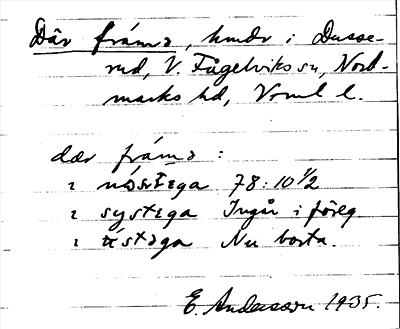 Där fráma, hmdr i Dusse-
rud, V. Fågelviks sn, Nord-
marks hd, Vrml l.
dær fráma :
ɩ nǿstega 78:10 1/2
ɩ systega Ingår i föreg
ɩ östəga Nu borta.
E. Andersson 1935.